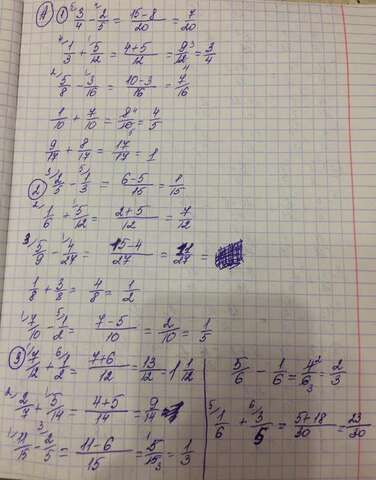 А) 1) 3/4 - 2/5 = (15-8)/20 = 7/20
1/3 + 5/12 = (4+5)/12 = 9/12 = 3/4
5/8 - 3/16 = (10-3)/16 = 7/16
1/10 + 7/10 = 8/10 = 4/5
9/17 + 8/17 = 17/17 = 1
2) 2/5 - 1/3 = (6-5)/15 = 1/15
1/6 + 5/12 = (2+5)/12 = 7/12
5/9 - 4/27 = (15-4)/27 = 11/27 =
1/8 + 3/8 = 4/8 = 1/2
7/10 - 1/2 = (7-5)/10 = 2/10 = 1/5
3) 7/12 + 1/2 = (7+6)/12 = 13/12 = 1 1/12
2/7 + 5/14 = (4+5)/14 = 9/14
11/15 - 2/5 = (11-6)/15 = 5/15 = 1/3
5/6 - 1/6 = 4/6 = 2/3
1/6 + 3/5 = (5+18)/30 = 23/30